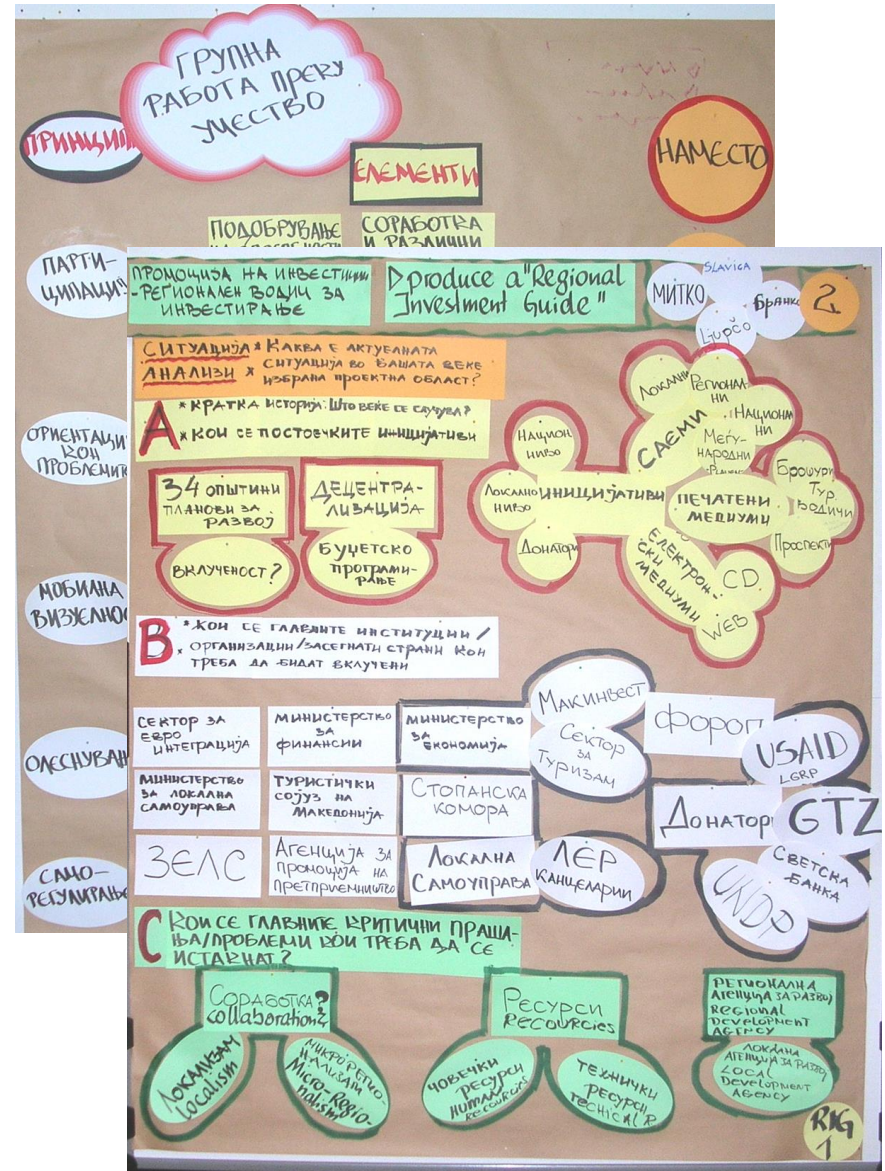 ГРУПНА
РАБОТА ПРЕКУ
УЧЕСТВО
ЕЛЕМЕНТИ
НАМЕСТО
ПОДОБРУВАЊЕ
СОРАБОТКА
И РАЗЛИЧНИ
ПАРТИ-
ОРИЕНТАЦИ
КОН
ПРОБЛЕМИТ
МОБИЛНА
ВИЗУЕЛНО
ОЛЕСНУВАЊ
САМО-
РЕГУЛИРАЊЕ
ПРОМОЦИЈА НА ИНВЕСТИЦИИ
-РЕГИОНАЛЕН ВОДИЧ ЗА
ИНВЕСТИРАЊЕ
produce a "Regional
Investment Guide"
SLAVICA
МИТКО
Бранко
Ljupčo
2
СИТУАЦИЈА * КАКВА Е АКТУЕЛНАТА
АНАЛИЗИ * СИТУАЦИЈА ВО ВАШАТА ВЕЌЕ
ИЗБРАНА ПРОЕКТНА ОБЛАСТ?
A * КРАТКА ИСТОРИЈА: ШТО ВЕЌЕ СЕ СЛУЧУВА?
* КОИ СЕ ПОСТОЕЧКИТЕ ИНИЦИЈАТИВИ
34 ОПШТИНИ
ПЛАНОВИ ЗА
РАЗВОЈ
ВКЛУЧЕНОСТ?
ДЕЦЕНТРА-
ЛИЗАЦИЈА
БУЏЕТСКО
ПРОГРАМИ-
РАЊЕ
НАЦИОН
НИВО
ЛОКАЛНО
НИВО
ДОНАТОРИ
ИНИЦИЈАТИВИ
САЕМИ
ЛОКАЛНИ
РЕГИОНАЛ-
НИ
НАЦИОНАЛ
НИ
МЕЃУ-
НАРОДНИ
ПЕЧАТЕНИ
МЕДИУМИ
БРОШУРИ
ТУР.
ВОДИЧИ
ПРОСПЕКТИ
ЕЛЕКТРОН-
СКИ
МЕДИУМИ
CD
WEB
B * КОИ СЕ ГЛАВНИТЕ ИНСТИТУЦИИ/
ОРГАНИЗАЦИИ/ЗАСЕГНАТИ СТРАНИ КОИ
ТРЕБА ДА БИДАТ ВКЛУЧЕНИ
СЕКТОР ЗА
ЕВРО
ИНТЕГРАЦИЈА
МИНИСТЕРСТВО
ЗА
ФИНАНСИИ
МИНИСТЕРСТВО
ЗА
ЕКОНОМИЈА
МАКИНВЕСТ
СЕКТОР
ЗА
ТУРИЗАМ
ФОРОП
USAID
LGRP
МИНИСТЕРСТВО
ЗА ЛОКАЛНА
САМОУПРАВА
ТУРИСТИЧКИ
СОЈУЗ НА
МАКЕДОНИЈА
СТОПАНСКА
КОМОРА
ДОНАТОРИ
GTZ
ЗЕЛС
АГЕНЦИЈА ЗА
ПРОМОЦИЈА НА
ПРЕТПРИЕМНИШТВО
ЛОКАЛНА
САМОУПРАВА
ЛЕР
КАНЦЕЛАРИИ
UNDP
СВЕТСКА
БАНКА
C КОИ СЕ ГЛАВНИТЕ КРИТИЧНИ ПРАША-
ЊА/ПРОБЛЕМИ КОИ ТРЕБА ДА СЕ
ИСТАКНАТ?
СОРАБОТКА?
collaboration?
ЛОКАЛИЗАМ
Localism
МИКРОРЕГИО-
НАЛИЗАМ
Micro-Regio-
nalism
РЕСУРСИ
RECOURCIES
ЧОВЕЧКИ
РЕСУРСИ
HUMAN
RECOURCIES
ТЕХНИЧКИ
РЕСУРСИ
TECHICAL R
РЕГИОНАЛНА
АГЕНЦИЈА ЗА РАЗВОЈ
REGIONAL
DEVELOPMENT
AGENCY
ЛОКАЛНА
АГЕНЦИЈА ЗА РАЗВОЈ
LOCAL
DEVELOPMENT
AGENCY
RIG
1